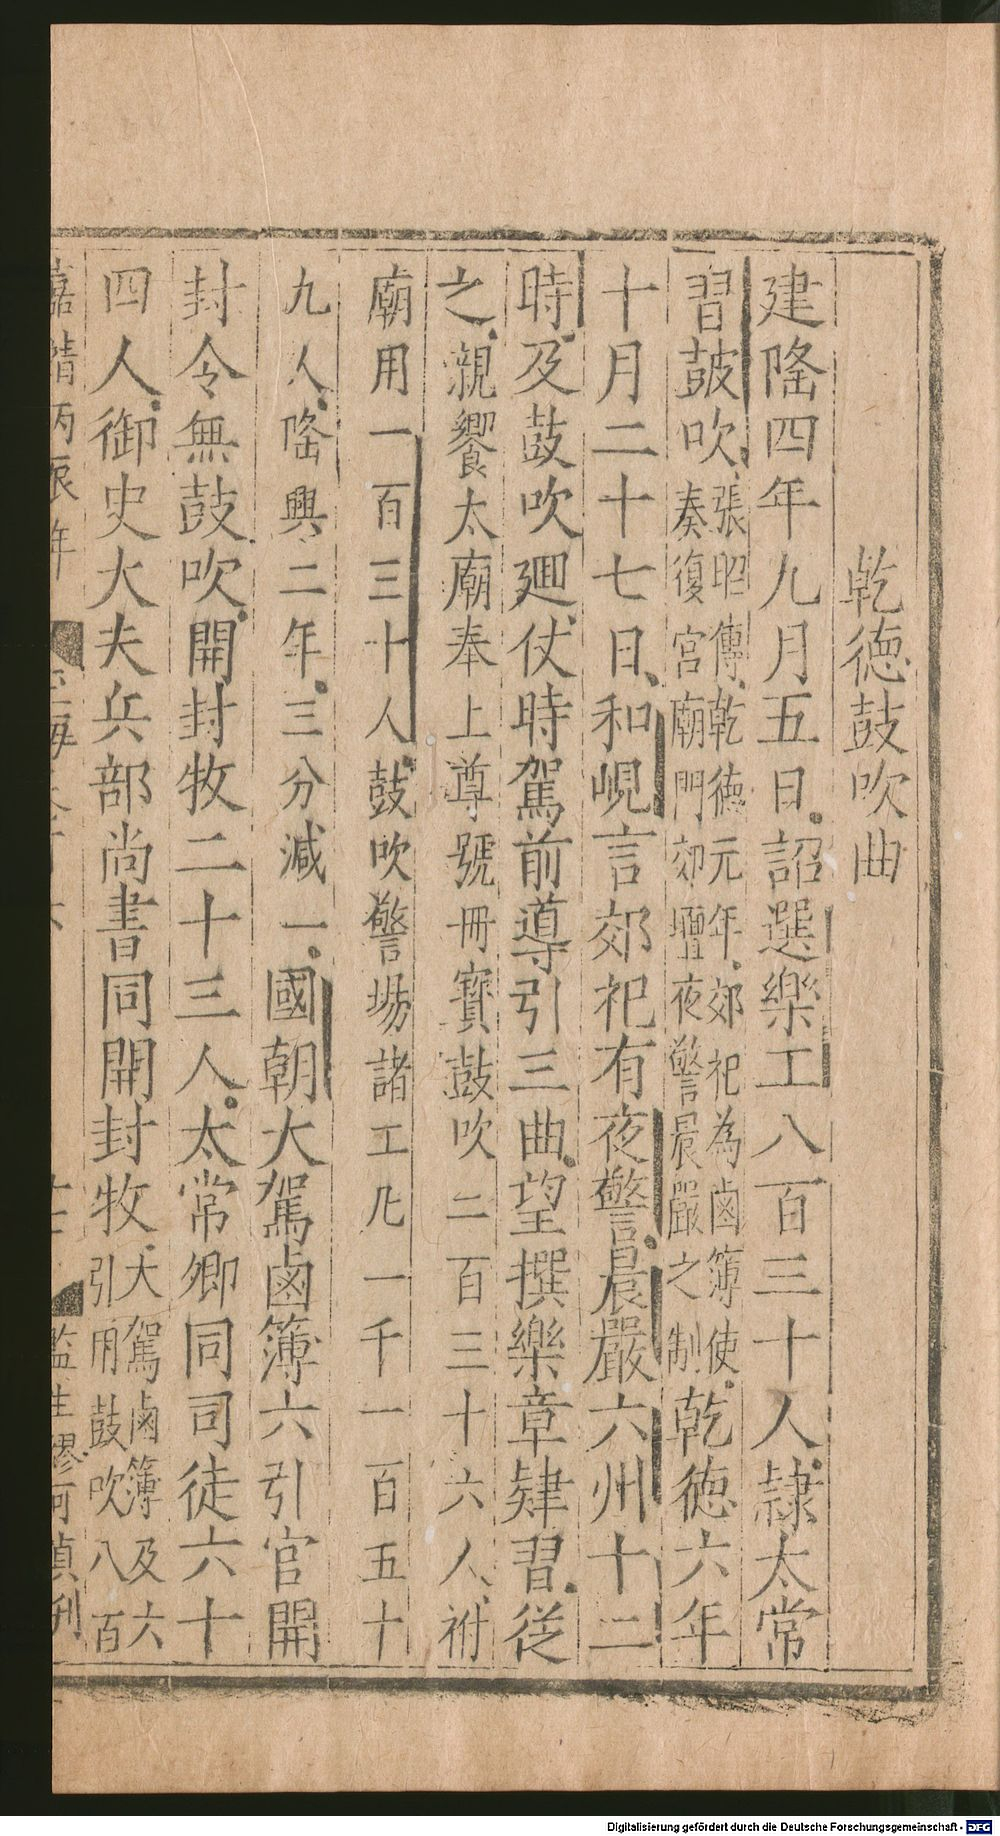 乾德鼓吹曲
建隆四年九月五日詔選樂工八百三十人隷太常
習鼓吹張昭傳乾德元年郊祀為鹵簿使奏復宫廟門郊壇夜警晨嚴之制乾德六年
十月二十七日和峴言郊祀有夜警晨嚴六州十二
時及鼓吹廻仗時駕前導引三曲望撰樂章肄習從
之親饗太廟奉上尊號冊寶鼓吹二百三十六人祔
廟用一百三十人鼓吹警塲諸工凡一千一百五十
九人隆興二年三分減一國朝大駕鹵簿六引官開
封令無鼓吹開封牧二十三人太常卿同司徒六十
四人御史大夫兵部尚書同開封牧大駕鹵簿及六引用鼓吹八百
年
Digitalisierung gefördert durch die Deutsche Forschungsgemeinschaft - DFG